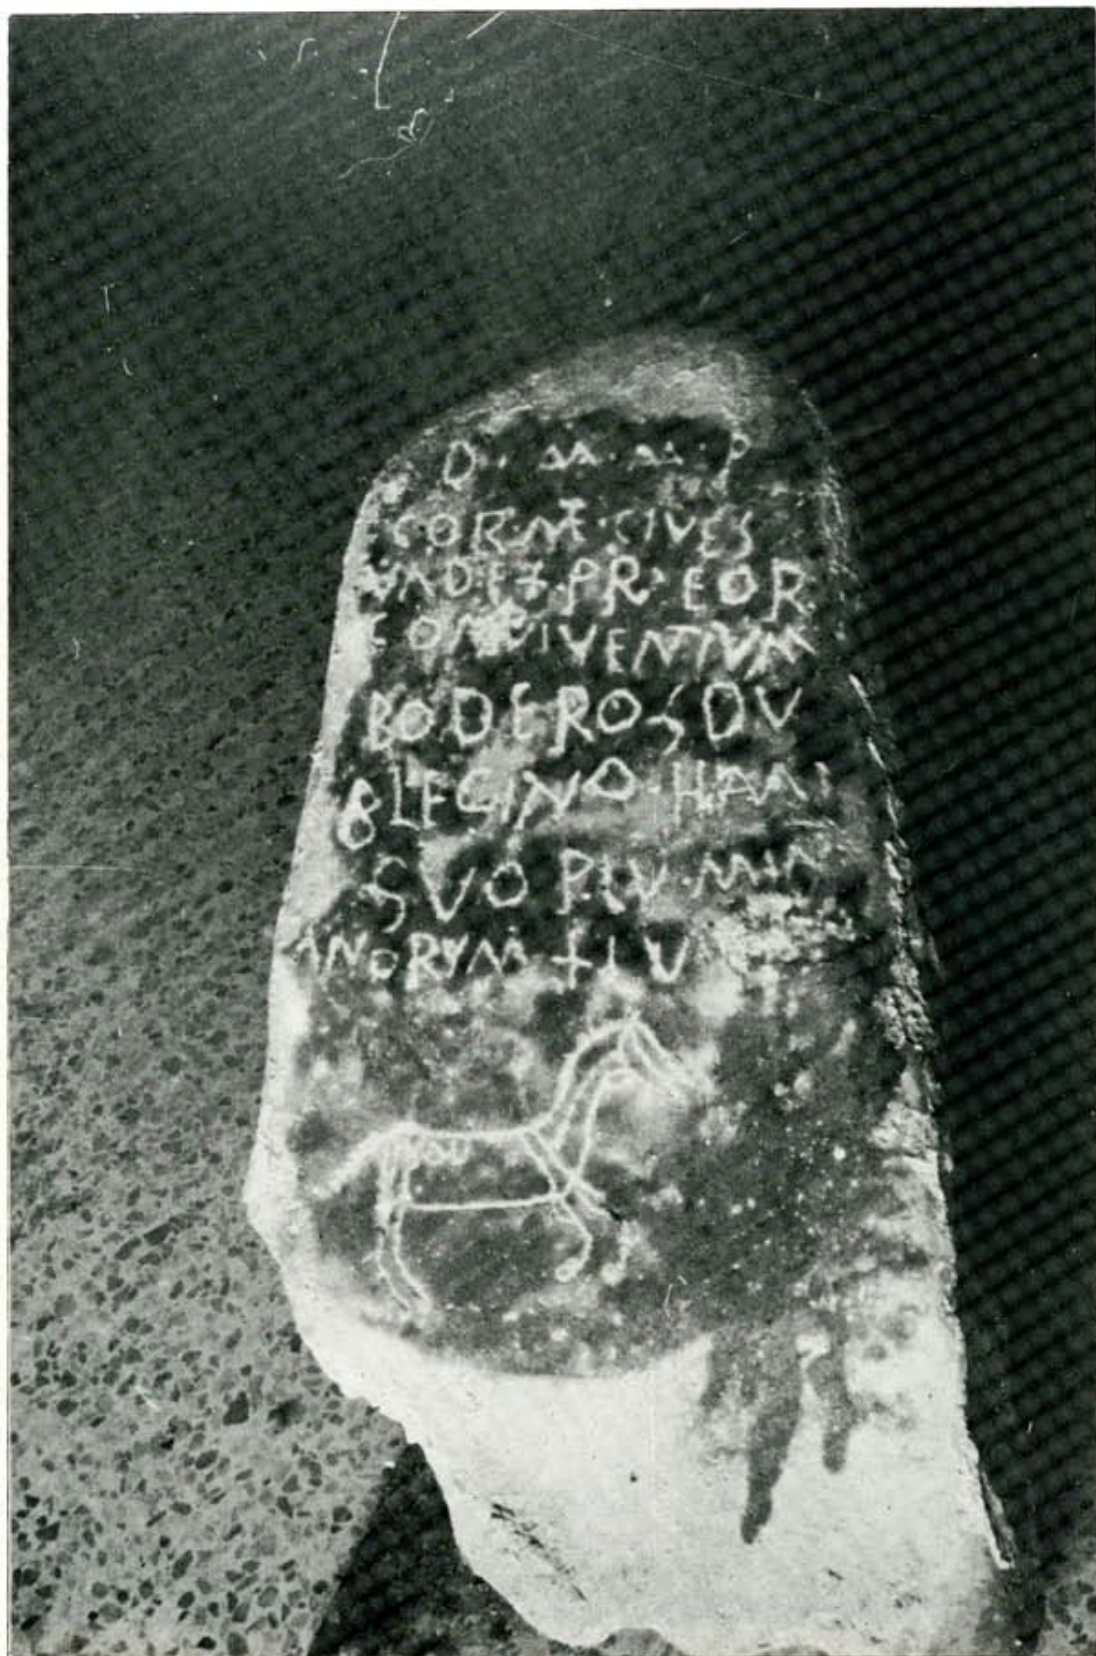 D · M · M · P
ECOR·NE·CIVES
VADE3·PR·EOR
CONVIVENTIVM
BODEROS DV
BLECINO·HANI
SVO P·LV·MIN
ANORVM + L V